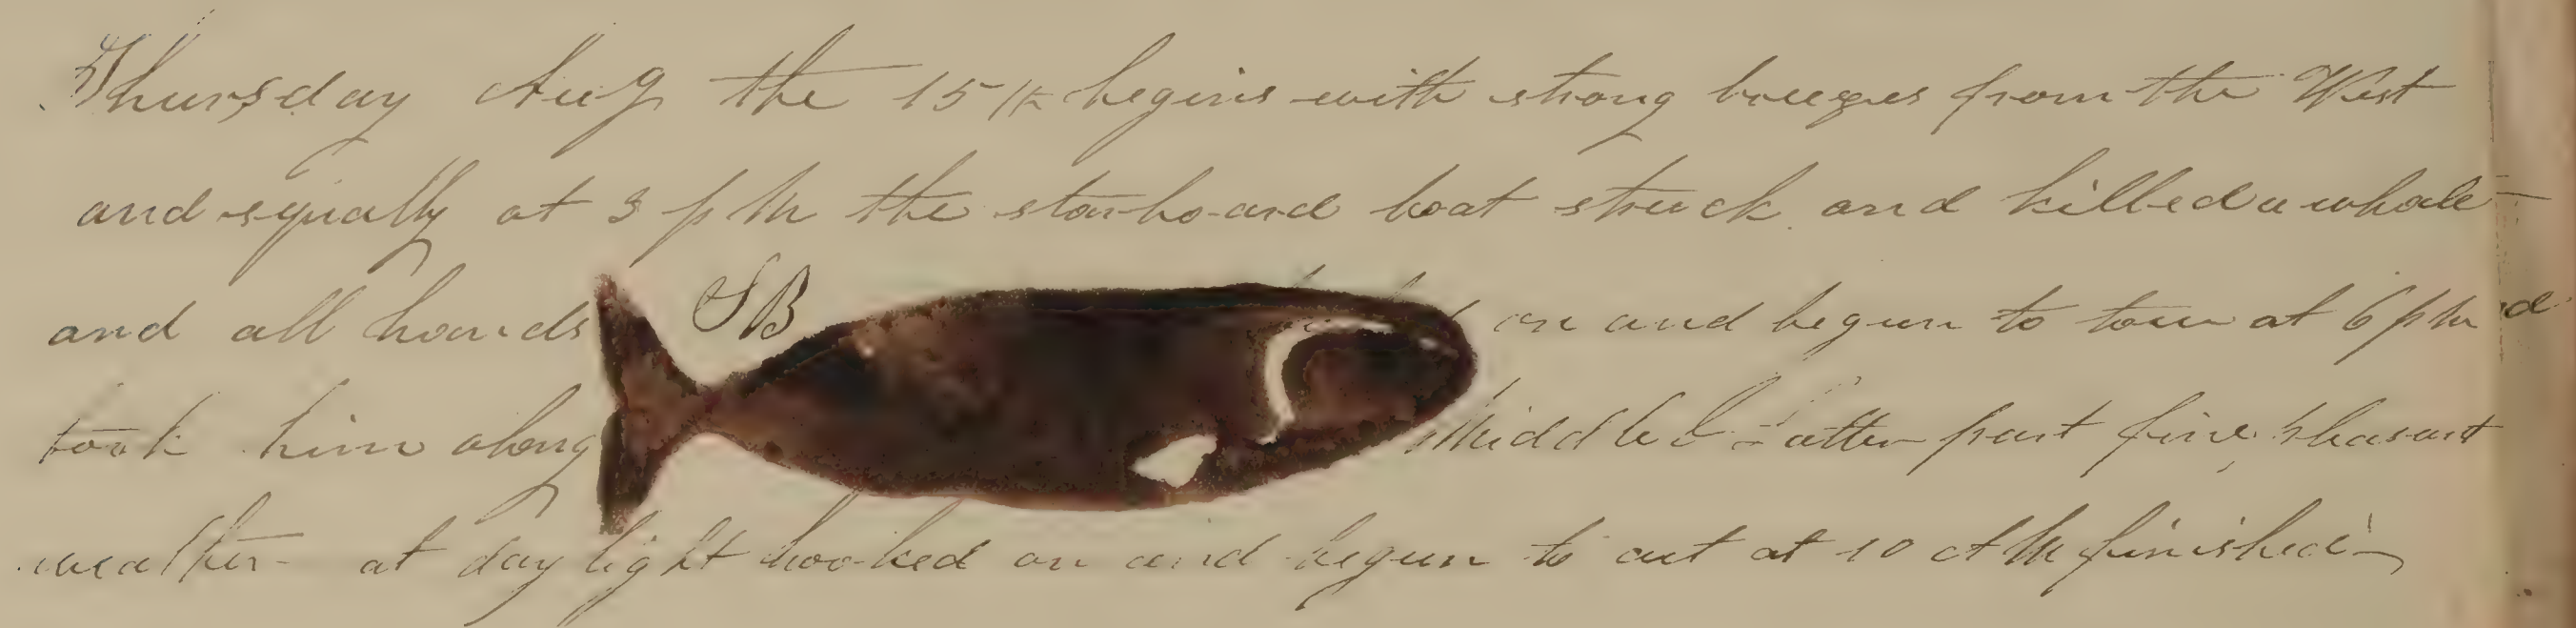 Thursday Aug the 15th begins with strong breezes from the West
and squally at 3 p M the starboard boat struck and killed a whale
and all hands SB on and begun to tow at 6 p m
took him along Middle & Latter part fine pleasant
weather at day light hooked on and begun to cut at 10 A M finished